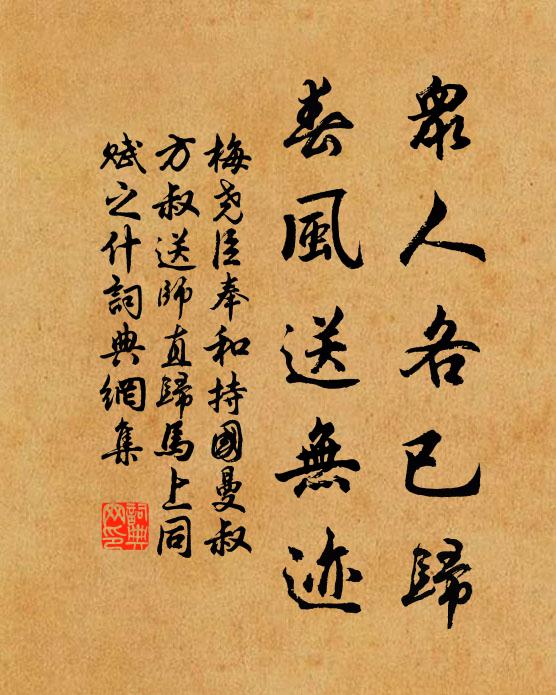 眾人各已歸
春風送無迹
梅堯臣奉和持國曼叔
方叔送師直歸馬上同
賦之什詞典網集
詞典網印